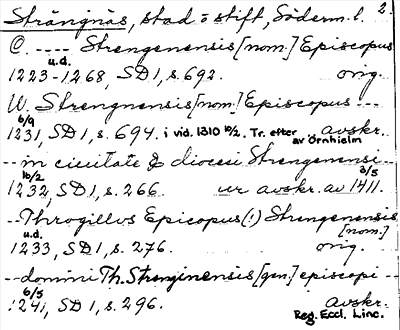 Strängnäs, stad o stift, Söderm. l. 2.
C. ---- Strengenensis [nom.] Episcopus
u.d.
1223-1268, SD 1, s. 692. orig.
W. Strengnensis [nom.] Episcopus ---
6/9
1231, SD 1, s. 694. i vid. 1310 10/2. Tr. efter avskr. av Örnhielm
-- in ciuitate & diocesi Strengenensi --
16/2
1232, SD 1, s. 266 ur avskr. av 1411. 3/5
-- Throgillvs Epicopus (!) Strengenensis [nom.]
u.d.
1233, SD 1, s. 276. orig.
-- domini Th. Strenginensis [gen.] episcopi --
6/5
1241, SD 1, s. 296. avskr.
Reg. Eccl. Linc.